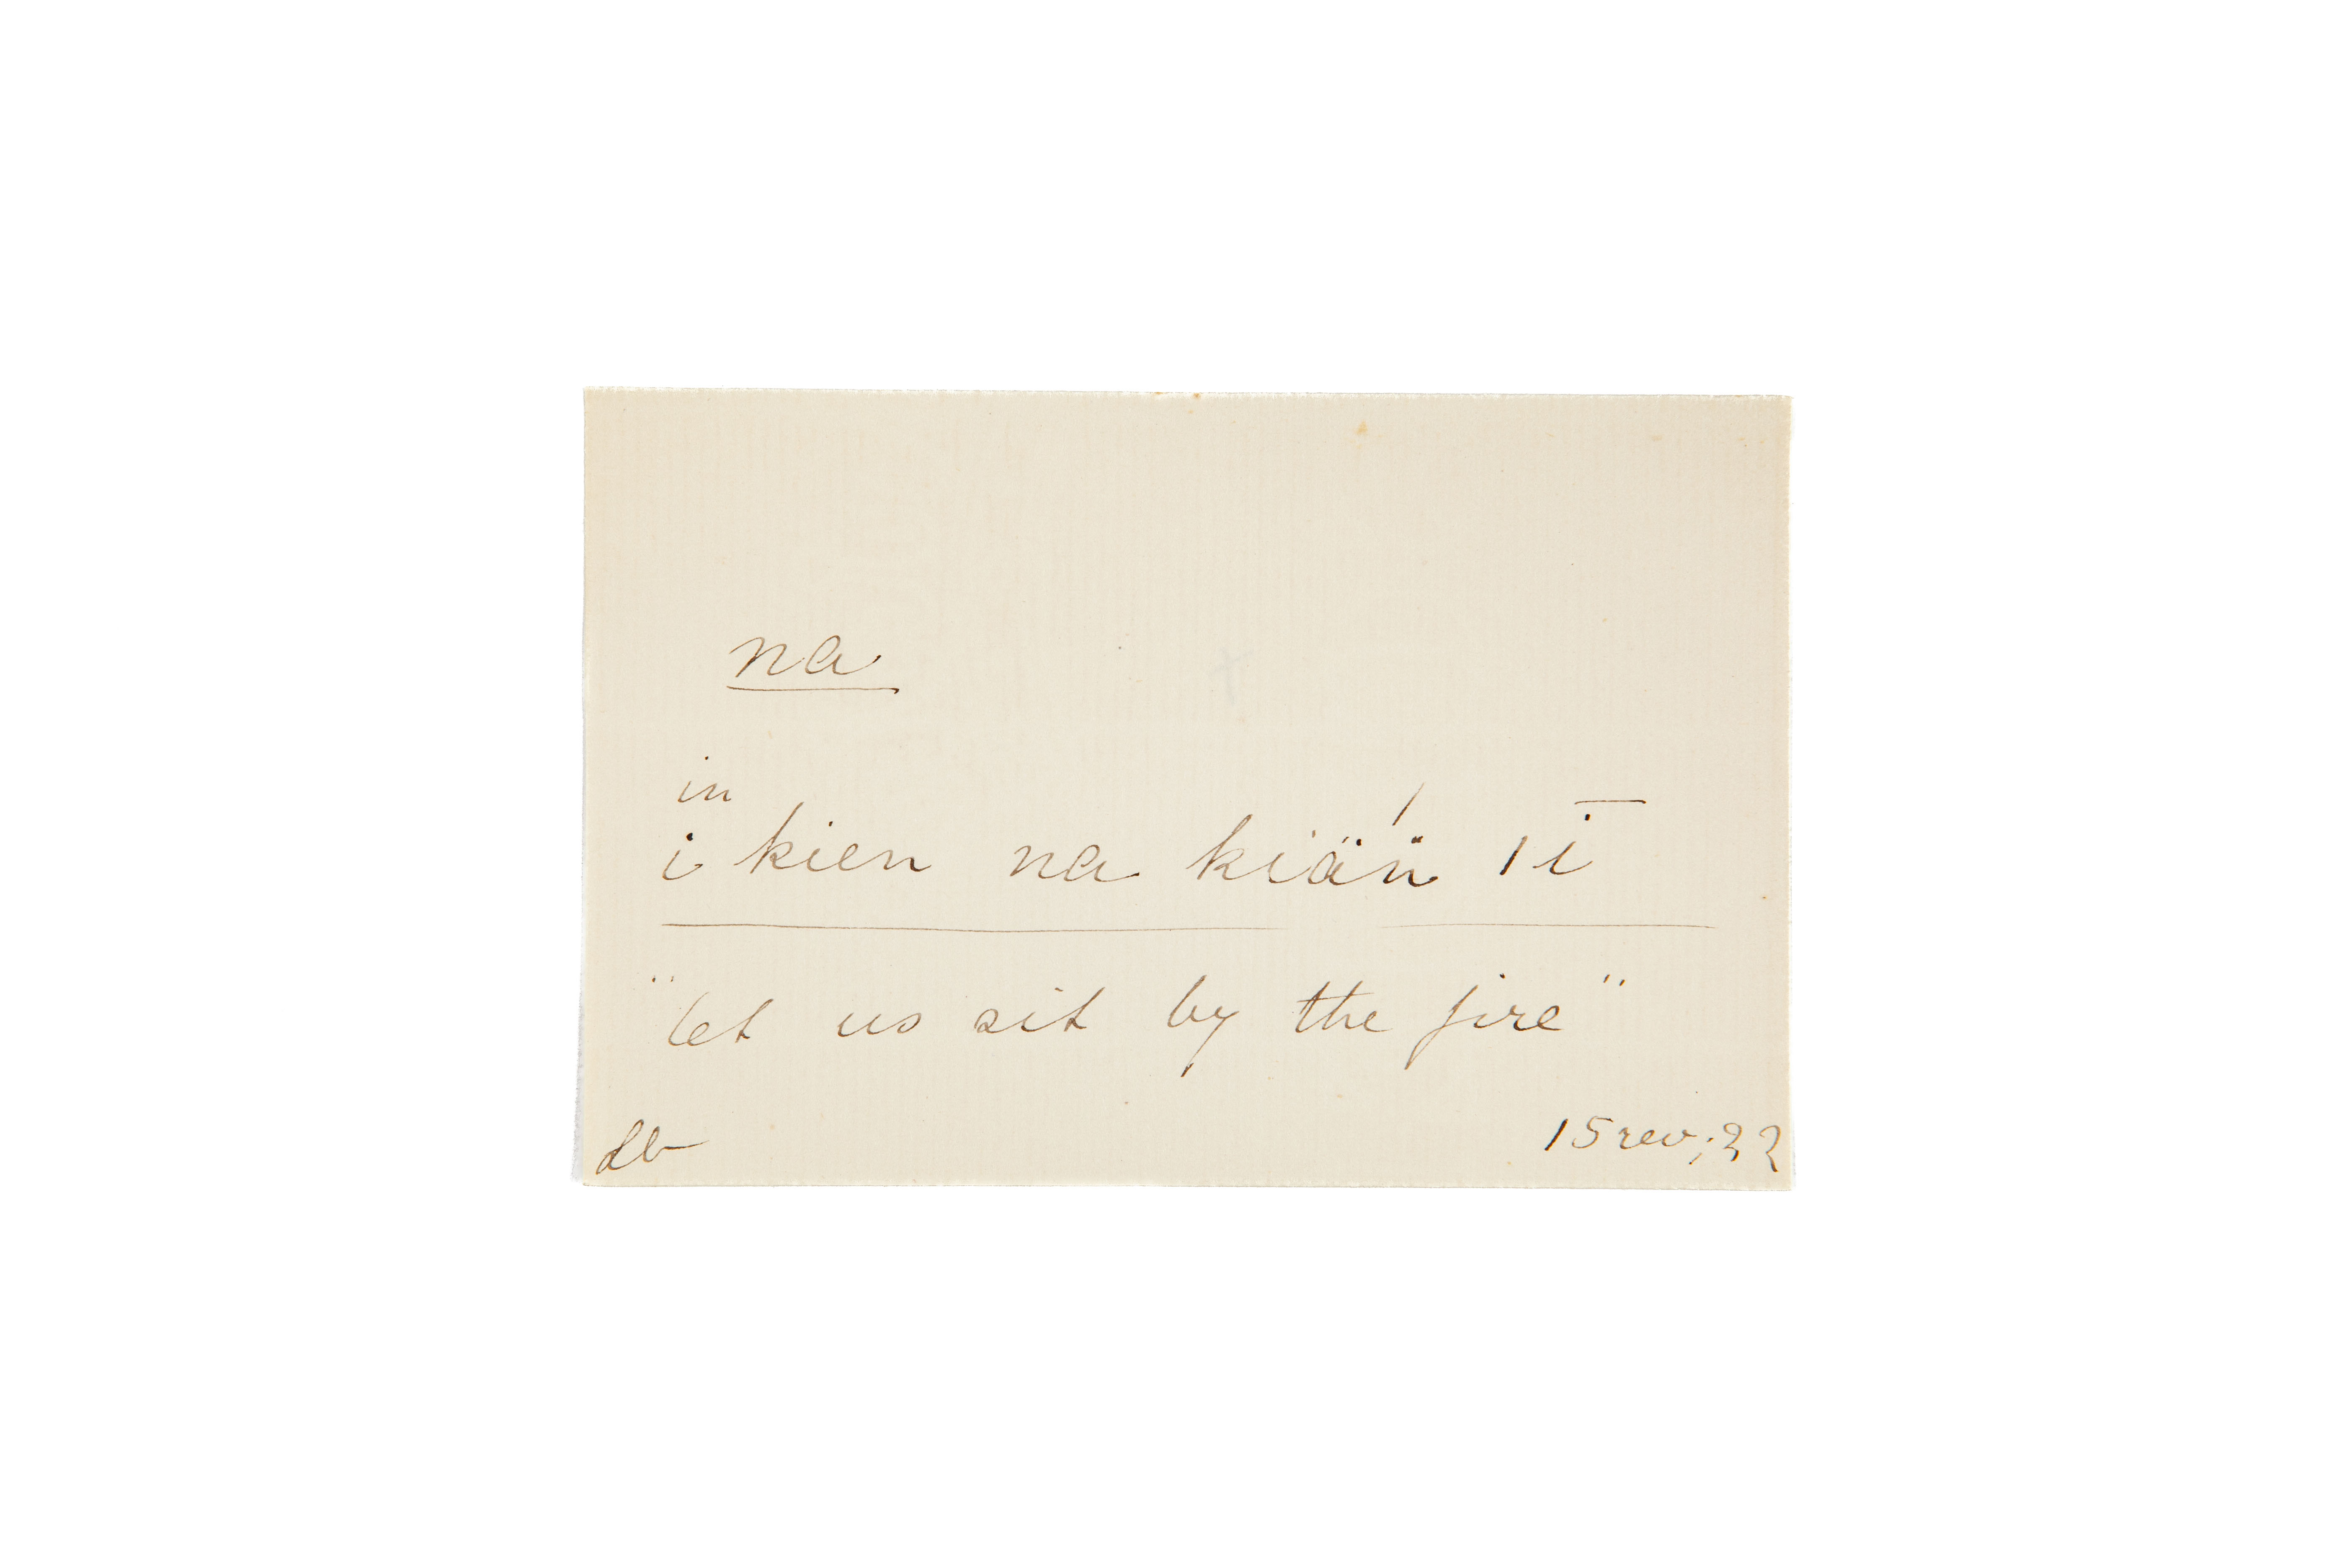 na
in
i kien na kiä́n̈ ǀ ī
"let us sit by the fire"
Lb 15 rev; 22